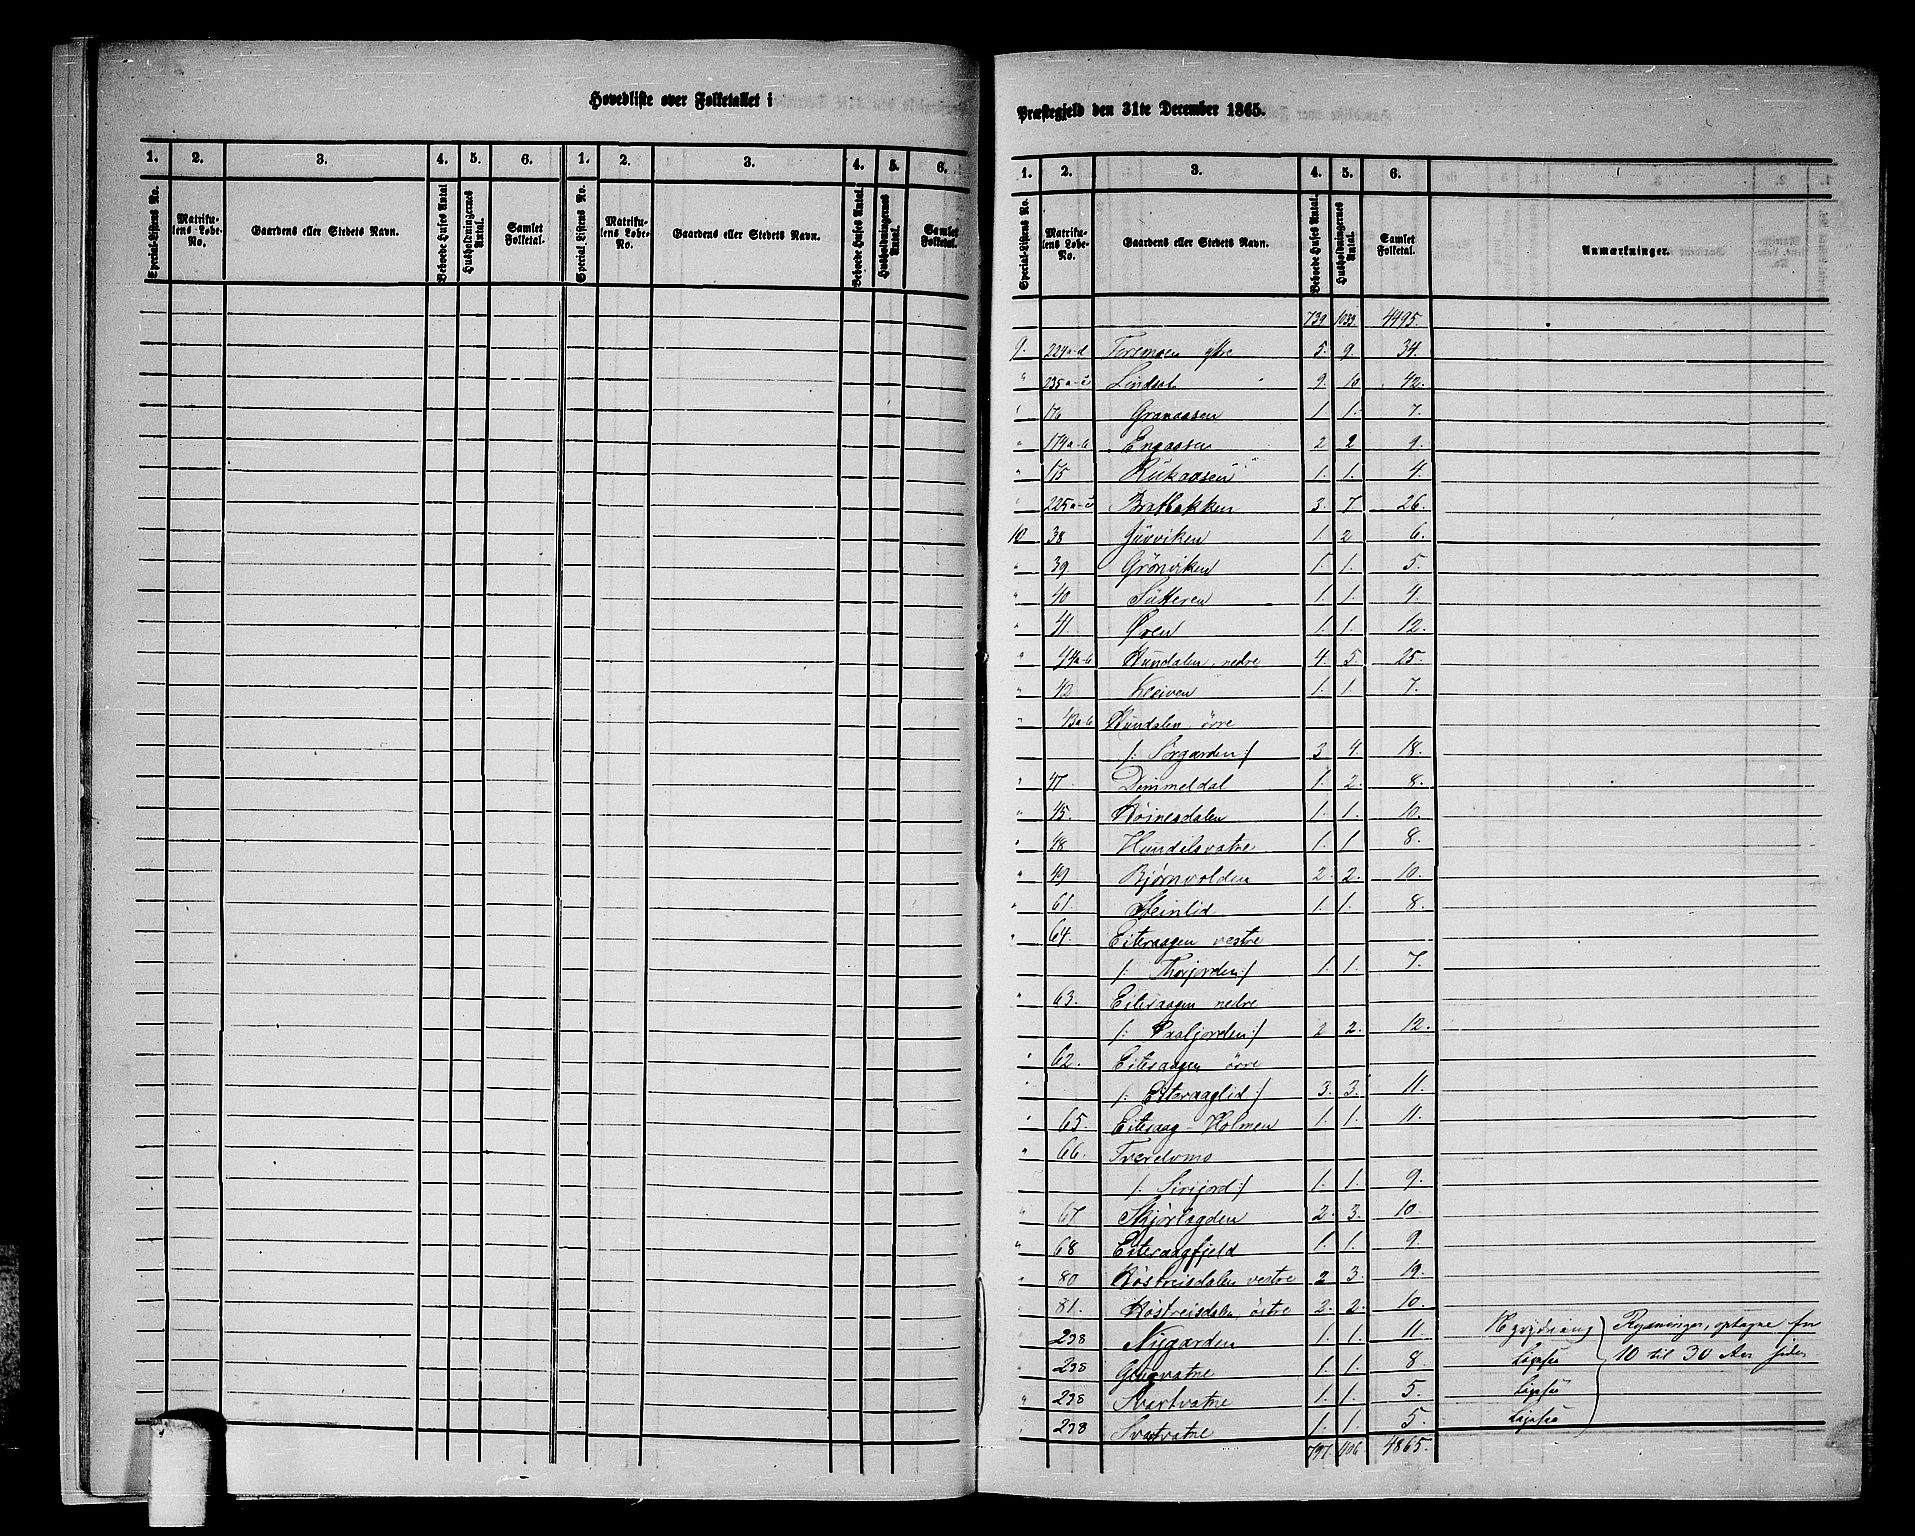 Hovedliste over Folketallet i
1. 2. 3. 4. 5. 6. 1. 2. 3. 4. 5. 6.
Special-Listens No. Matrikulens Løbe-No. Gaardens eller Stedets Navn. Beboede Huses Antal. Husholdningernes Antal. Samlet Folketal. Special-Listens No. Matrikulens Løbe-No. Gaardens eller Stedets Navn. Beboede Huses Antal. Husholdningernes Antal. Samlet Folketal.
Præstegjeld den 31te December 1865.
1. 2. 3. 4. 5. 6.
Special-Listens No. Matrikulens Løbe-No. Gaardens eller Stedets Navn. Beboede Huses Antal. Husholdningernes Antal. Samlet Folketal. Anmærkninger.
739 1033 4495.
9. 224a-d Toremoen ytre 5. 9. 34.
" 235a-c Lindset 9. 10 42.
" 176 Granaasen 1. 1. 7.
" 174a-b Engaasen 2 2 9.
" 175 1. 1. 4.
" 225a-c Bratbakken 3. 7 26.
10 38 Juvviken 1. 2 6.
" 39. Grönviken 1. 1. 5.
" 40 Sutteren 1. 1. 4.
" 41. Øren 1. 1. 12.
" 44a-b Hundalen, nedre 4. 5. 25.
" 42 Kleiven 1. 1 7.
" 43a-b Hundalen, övre
/: Sørgarden :/ 3 4. 18.
" 47 Dimmeldal 1. 2. 8.
" 45. 1. 1. 10.
" 48 Hundalsvatne 1. 1 8.
" 49 Bjørnvolden 2. 2. 10.
" 61. Steinlid 1. 1. 8.
" 64. Eiteraagen vestre
/: Thorjorden :/ 1. 1. 7.
" 63. Eiteraagen nedre
/: Paaljorden :/ 2 2. 12.
" 62. Eiteraagen övre
/: Eiteraaglid :/ 3. 3. 11.
" 65. Eiteraag-Holmen 1. 1. 11.
" 66.
/: Sirijord :/ 1. 1. 9.
" 67 Stjørlægden 2. 3. 10.
" 68 Eiteraagfjeld 1. 1. 9.
" 80 Høstreisdalen vestre 2 3. 19.
81. Høstreisdalen, østre 2. 2. 10.
238 Nygarden 1. 1. 11. } Rydninger, optagne for
238 1. 1. 8 Ligesaa 10 til 30 Aar siden
" 238 Svartvatne 1. 1. 5. Ligesaa
238 Svartvatne 1. 1. 5. Ligesaa
797 1106 4865.